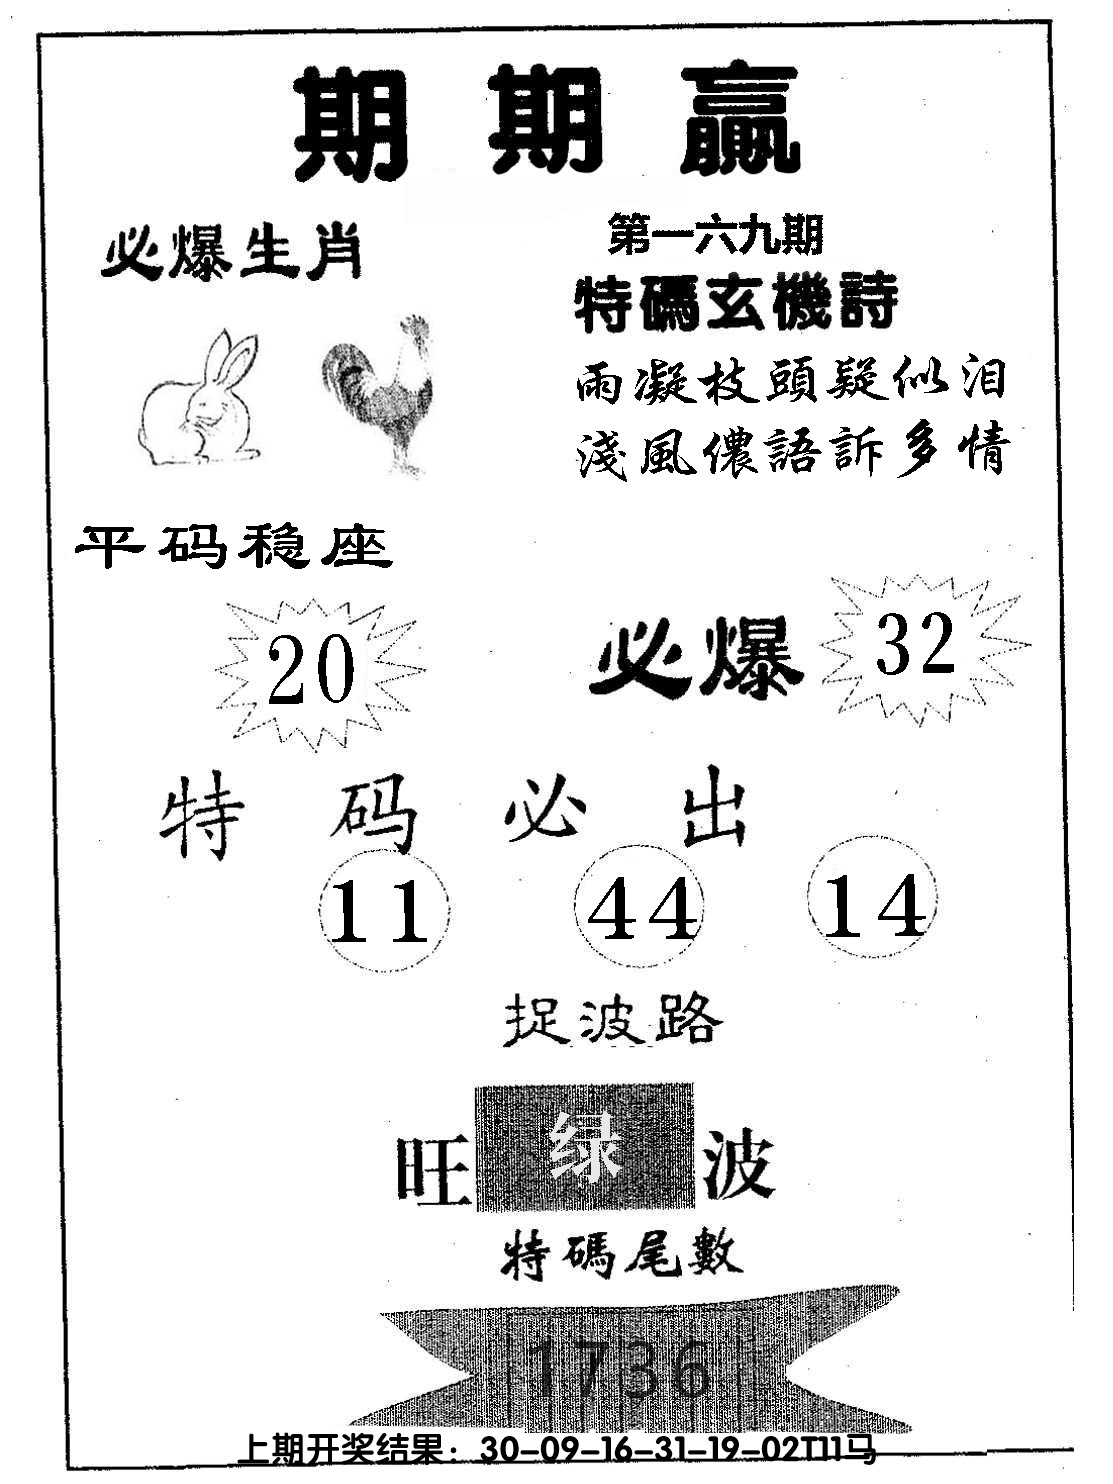 期期赢
必爆生肖
第一六九期
特碼玄機詩
雨凝枝頭疑似泪
淺風儂語訴多情
平码稳座
20
必爆 32
特码必出
11 44 14
捉波路
旺 绿 波
特碼尾數
1736
上期开奖结果：30-09-16-31-19-02T11马